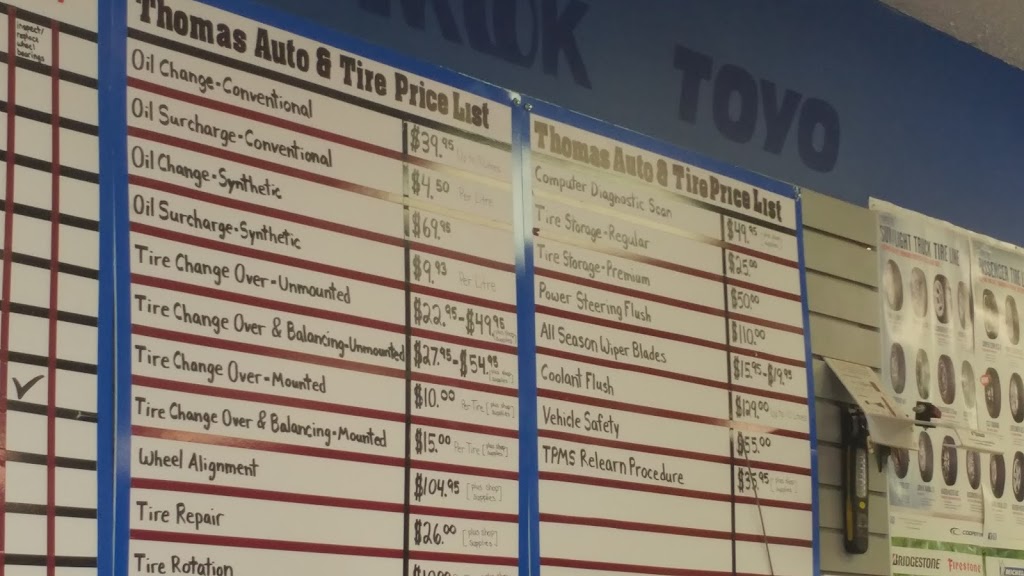 inspect/
replace
wheel
bearings
✓
Thomas Auto & Tire Price List
Oil Change-Conventional $39.95
Oil Surcharge-Conventional $4.50 Per Litre
Oil Change-Synthetic $69.95
Oil Surcharge-Synthetic $9.93 Per Litre
Tire Change Over-Unmounted $22.95-$49.95 [plus shop supplies]
Tire Change Over & Balancing-Unmounted $27.95-$54.95 [plus shop supplies]
Tire Change Over-Mounted $10.00 Per Tire [plus shop supplies]
Tire Change Over & Balancing-Mounted $15.00 Per Tire [plus shop supplies]
Wheel Alignment $104.95 [plus shop supplies]
Tire Repair $26.00 [plus shop supplies]
Tire Rotation
TOYO
Thomas Auto & Tire Price List
Computer Diagnostic Scan $49.95 [plus shop supplies]
Tire Storage-Regular $25.00
Tire Storage-Premium $50.00
Power Steering Flush $110.00
All Season Wiper Blades $15.95-$19.95
Coolant Flush $129.00
Vehicle Safety $55.00
TPMS Relearn Procedure $35.95 [plus shop supplies]
LIGHT TRUCK TIRE LINE
PASSENGER TIRE
COOPER
BRIDGESTONE
Firestone